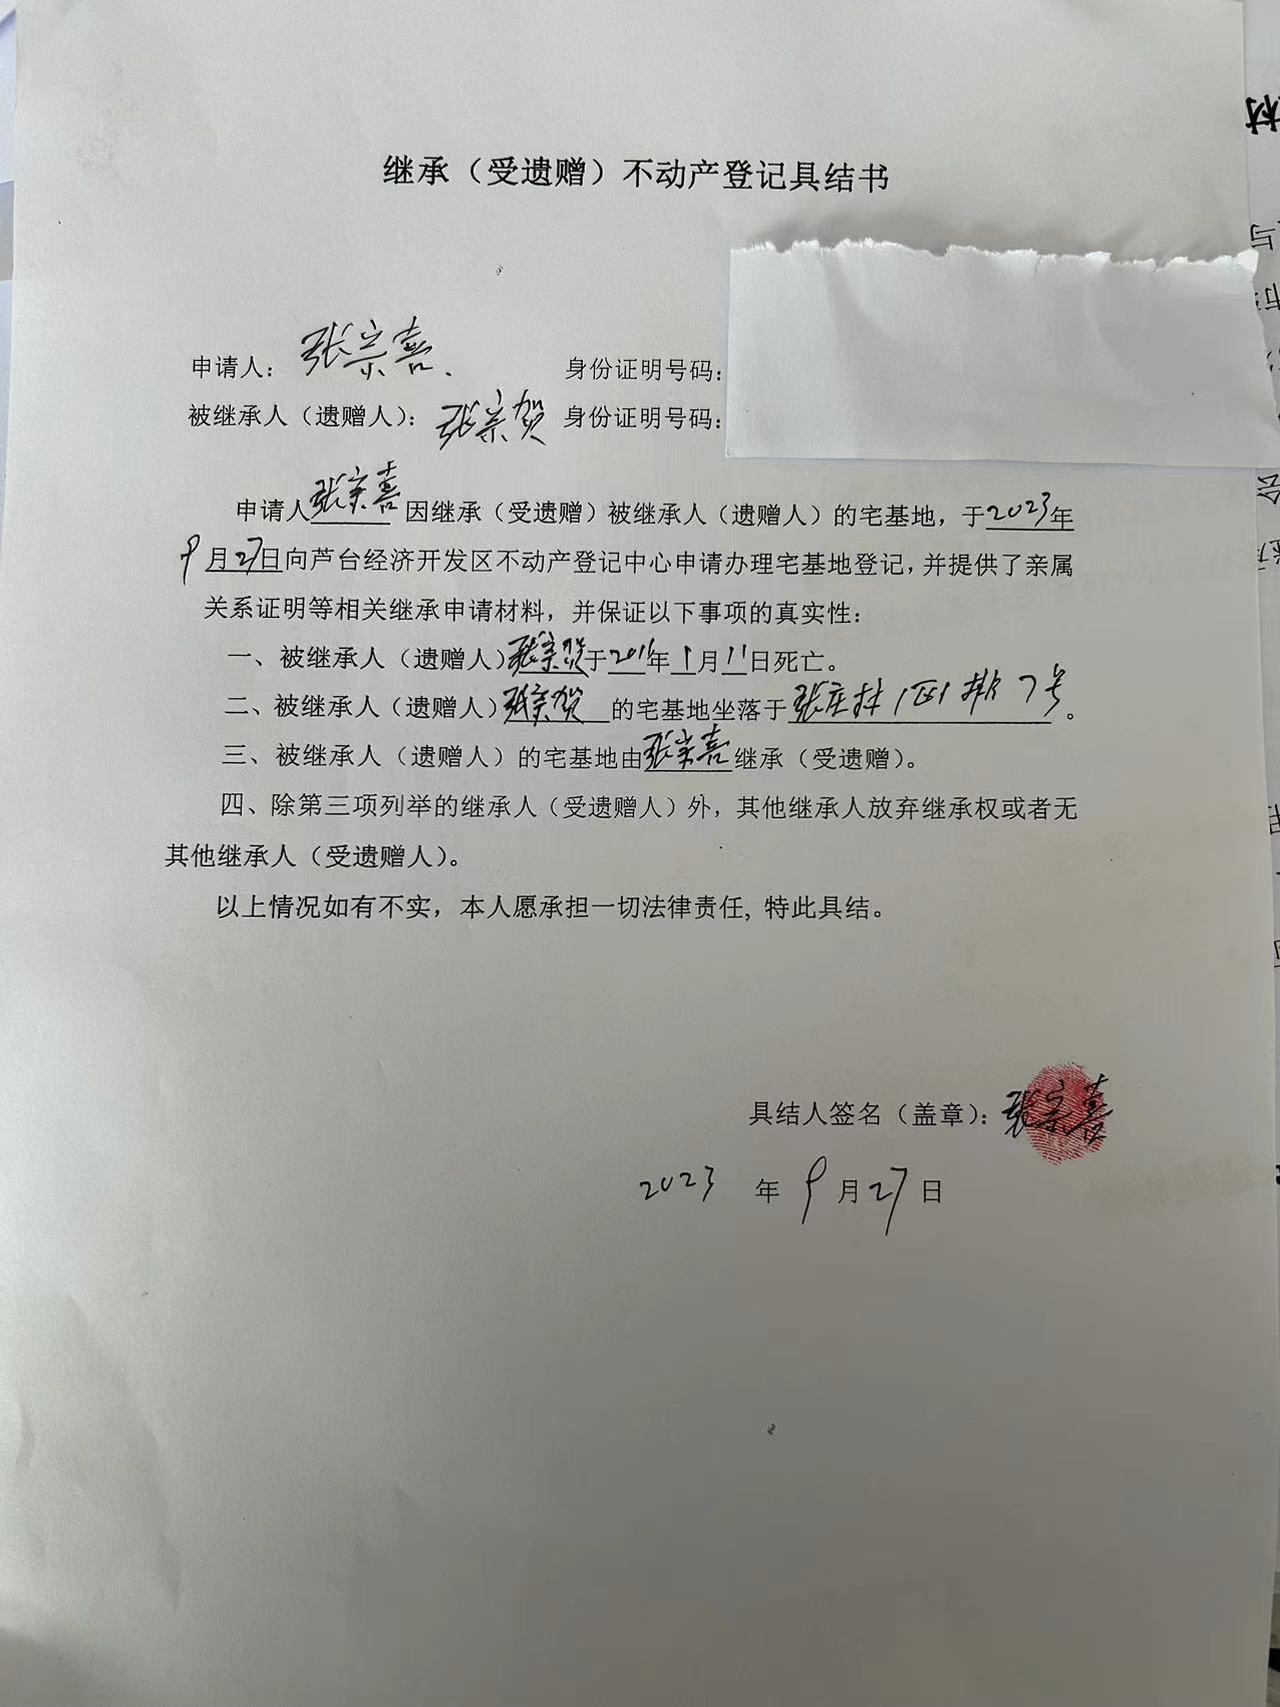 继承（受遗赠）不动产登记具结书
申请人：张宗喜. 身份证明号码：
被继承人（遗赠人）：张宗贺 身份证明号码：
申请人张宗喜因继承（受遗赠）被继承人（遗赠人）的宅基地，于2023年
9月27日向芦台经济开发区不动产登记中心申请办理宅基地登记，并提供了亲属
关系证明等相关继承申请材料，并保证以下事项的真实性：
一、被继承人（遗赠人）张宗贺于2016年1月11日死亡。
二、被继承人（遗赠人）张宗贺的宅基地坐落于张庄村1区1排7号。
三、被继承人（遗赠人）的宅基地由张宗喜继承（受遗赠）。
四、除第三项列举的继承人（受遗赠人）外，其他继承人放弃继承权或者无
其他继承人（受遗赠人）。
以上情况如有不实，本人愿承担一切法律责任, 特此具结。
具结人签名（盖章）：张宗喜
2023 年 9 月 27 日